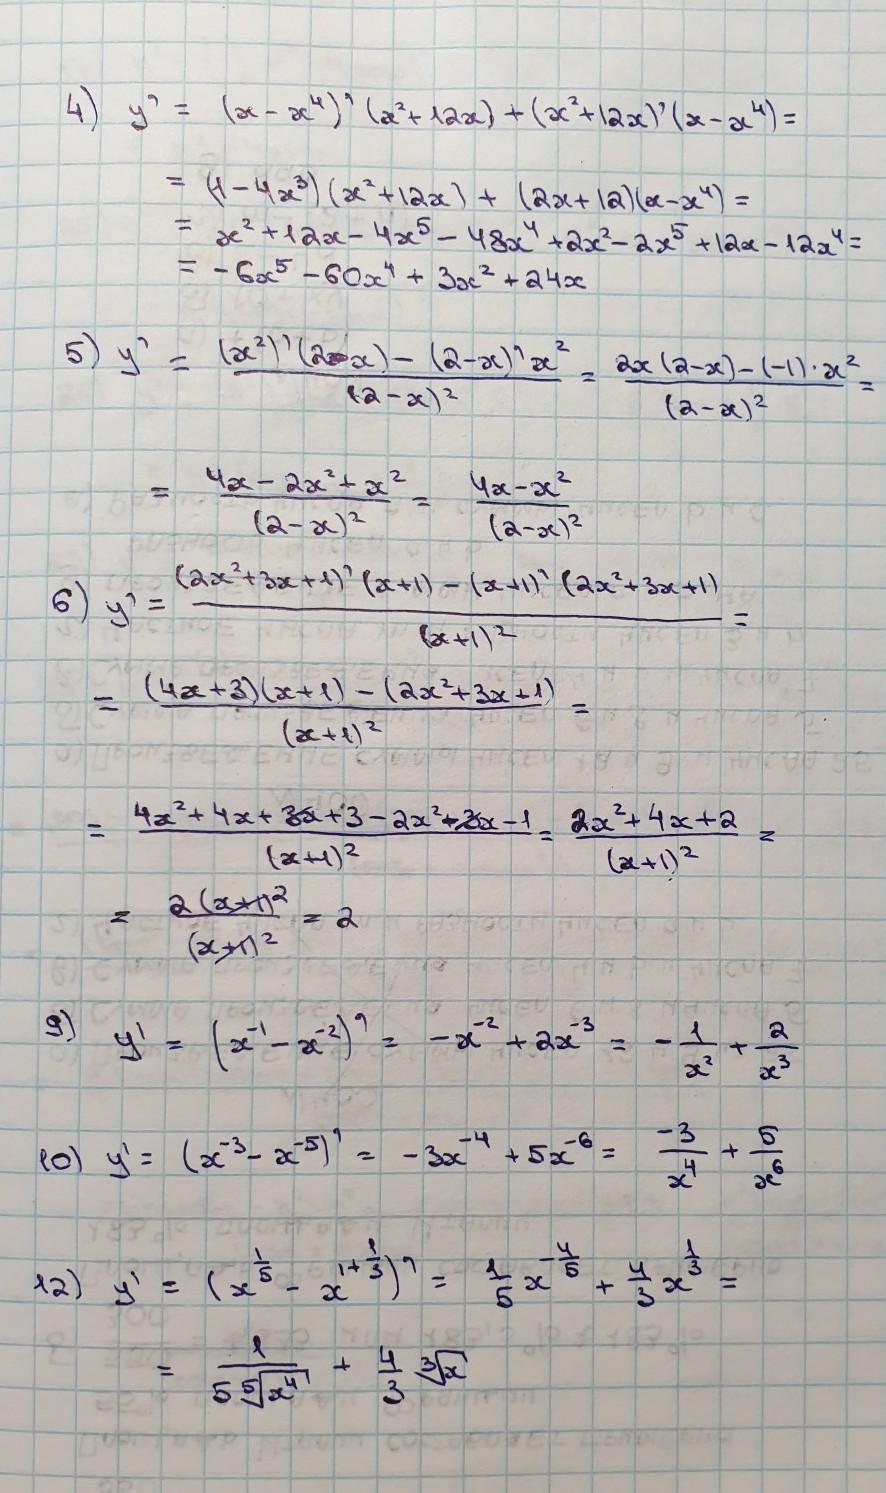 4) y' = (x - x⁴)' (x² + 12x) + (x² + 12x)' (x - x⁴) =
= (1 - 4x³) (x² + 12x) + (2x + 12)(x - x⁴) =
= x² + 12x - 4x⁵ - 48x⁴ + 2x² - 2x⁵ + 12x - 12x⁴ =
= -6x⁵ - 60x⁴ + 3x² + 24x
5) y' = ((x²)' (2-x) - (2-x)' x²)/(2-x)² = (2x(2-x) - (-1)·x²)/(2-x)² =
= (4x - 2x² + x²)/(2-x)² = (4x - x²)/(2-x)²
6) y' = ((2x² + 3x + 1)' (x+1) - (x+1)' (2x² + 3x + 1))/(x+1)² =
= ((4x+3)(x+1) - (2x² + 3x + 1))/(x+1)² =
= (4x² + 4x + 3x + 3 - 2x² - 3x - 1)/(x+1)² = (2x² + 4x + 2)/(x+1)² =
= 2(x+1)²/(x+1)² = 2
9) y' = (x⁻¹ - x⁻²)' = -x⁻² + 2x⁻³ = -1/x² + 2/x³
10) y' = (x⁻³ - x⁻⁵)' = -3x⁻⁴ + 5x⁻⁶ = -3/x⁴ + 5/x⁶
12) y' = (x^(1/5) - x^(1+1/3))' = 1/5 x^(-4/5) + 4/3 x^(1/3) =
= 1/(5 ⁵√x⁴) + 4/3 ³√x